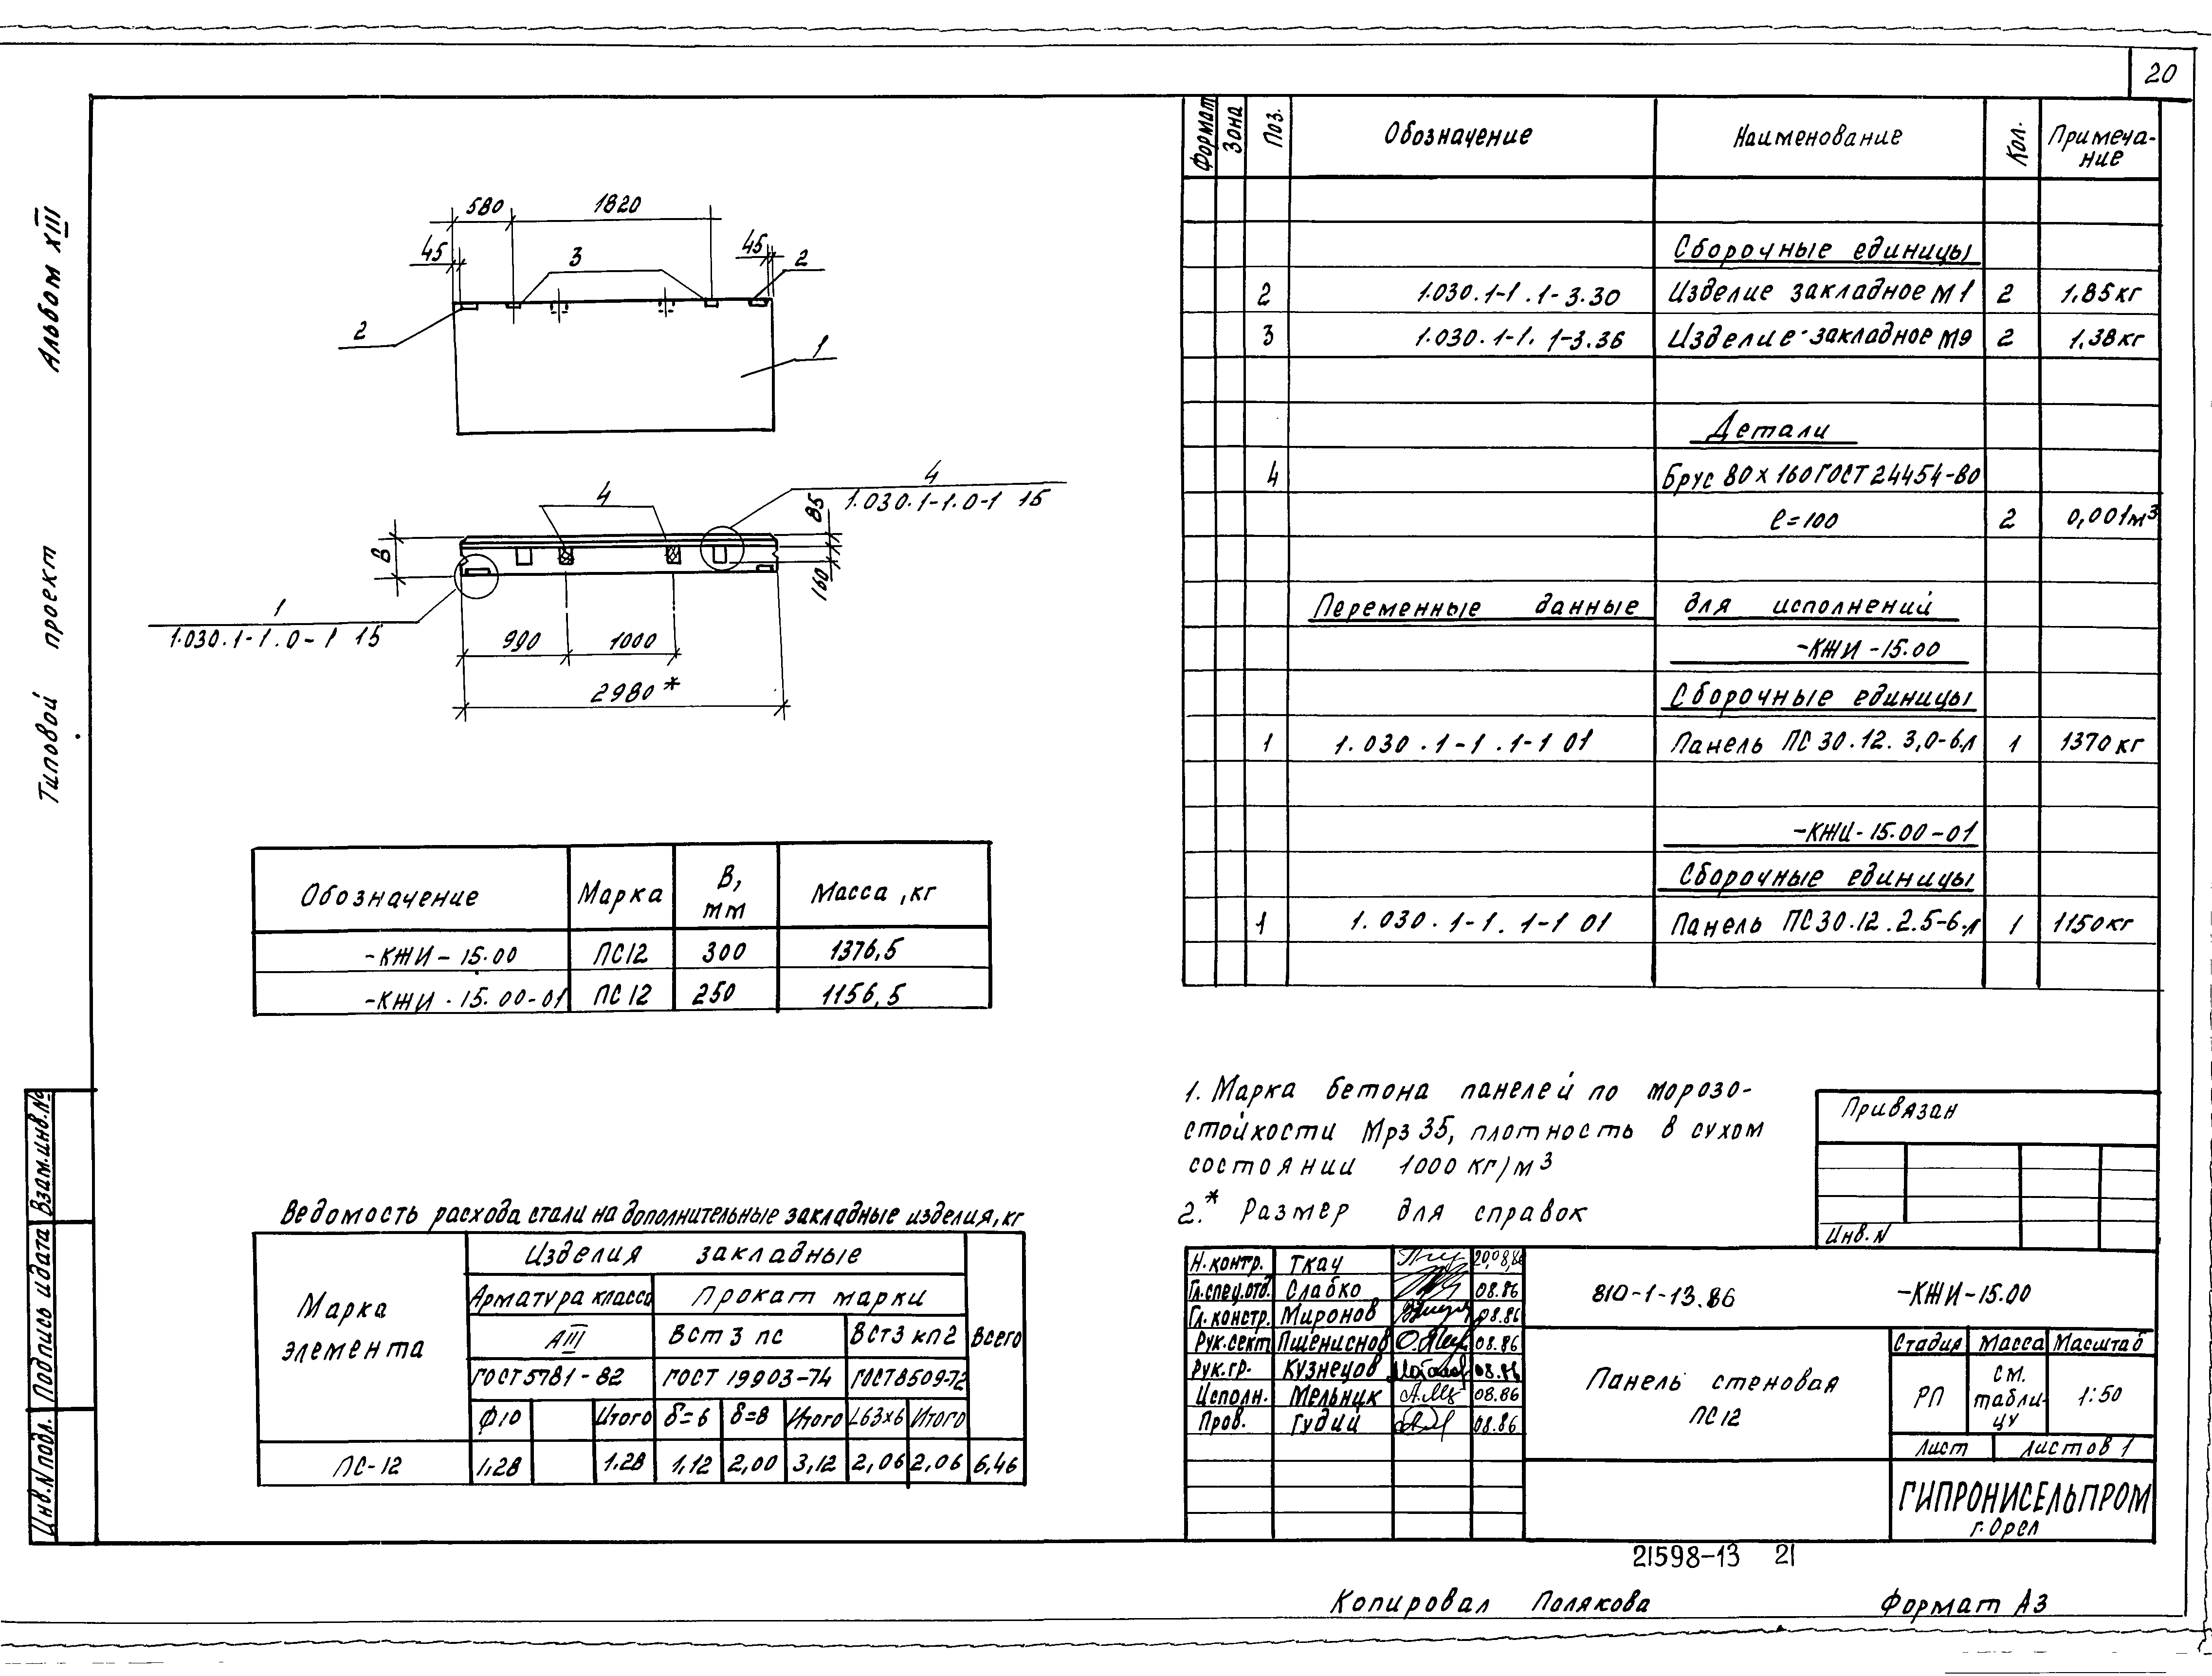 20
Альбом XIII
Типовой проект
580 1820
45 3 45 2
2
1
4
1.030.1-1.0-1 15
4
85
В
160
1
1.030.1-1.0-1 15
990 1000
2980*
Обозначение Марка В, мм Масса, кг
-КЖИ-15.00 ПС12 300 1376,5
-КЖИ-15.00-01 ПС12 250 1156,5
Ведомость расхода стали на дополнительные закладные изделия, кг
Марка элемента Изделия закладные Всего
Арматура класса Прокат марки
АIII ВСт3пс ВСт3кп2
ГОСТ 5781-82 ГОСТ 19903-74 ГОСТ 8509-72
Ф10 Итого δ=6 δ=8 Итого L63х6 Итого
ПС-12 1,28 1,28 1,12 2,00 3,12 2,06 2,06 6,46
Формат Зона Поз. Обозначение Наименование Кол. Примеча-
ние
Сборочные единицы
2 1.030.1-1.1-3.30 Изделие закладное М1 2 1,85кг
3 1.030.1-1.1-3.36 Изделие закладное М9 2 1,38кг
Детали
4 Брус 80х160 ГОСТ 24454-80
ℓ=100 2 0,001м³
Переменные данные для исполнений
-КЖИ-15.00
Сборочные единицы
1 1.030.1-1.1-1 01 Панель ПС30.12.3,0-6.л 1 1370кг
-КЖИ-15.00-01
Сборочные единицы
1 1.030.1-1.1-1 01 Панель ПС30.12.2.5-6.л 1 1150кг
1. Марка бетона панелей по морозо-
стойкости Мрз 35, плотность в сухом
состоянии 1000 кг/м³
2.* Размер для справок
Привязан
Инв.N
Н.контр. Ткач 20.08.86
Гл.спец.отд. Слабко 08.86
Гл.констр. Миронов 08.86
Рук.сект Пшениснов 08.86
Рук.гр. Кузнецов 08.86
Исполн. Мельник 08.86
Пров. Гудий 08.86
810-1-13.86 -КЖИ-15.00
Панель стеновая
ПС12
Стадия Масса Масштаб
РП см. табли-
цу 1:50
Лист Листов 1
ГИПРОНИСЕЛЬПРОМ
г.Орел
Взам.инв.№
Подпись и дата
Инв.N подл.
21598-13 21
Копировал Полякова Формат А3